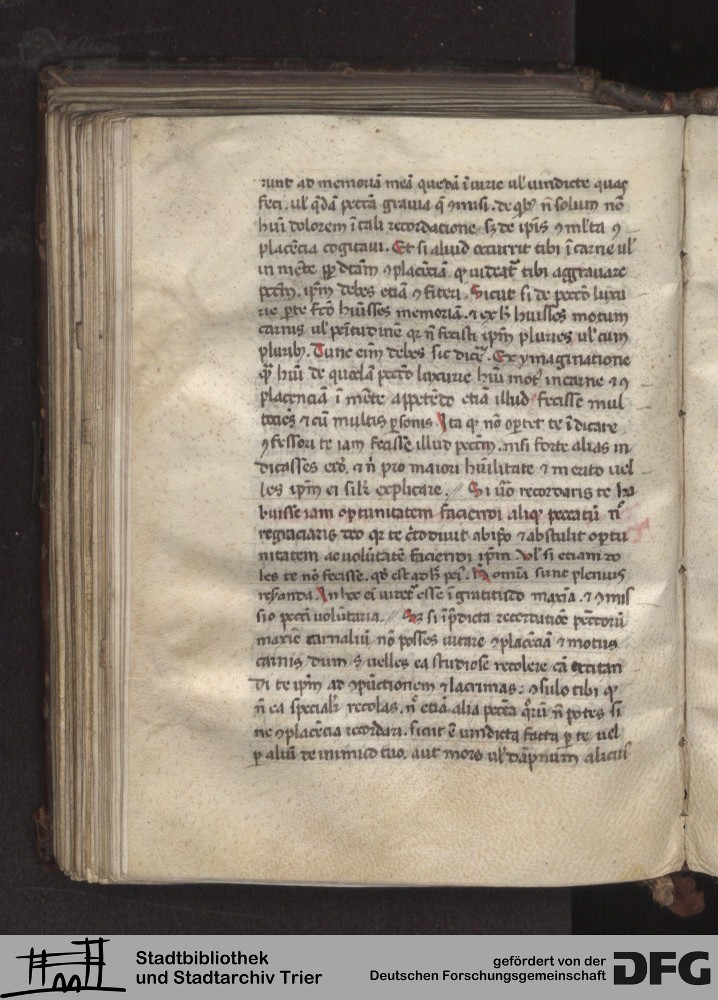 runt ad memoriā meā quedā īiurie ul' uindicte quas
feci. ul' q̄dā peccā grauia q̄ ꝯmisi. de qb; n̄ solum nō
hui dolorem ī tali recordatione. sȝ de ip̄is ꝯ ml'ta ꝯ
placēcia cogitaui. Et si aliud occurrit tibi ī carne ul'
in mēte ꝓpt̄ dc̄am ꝯplacēciā. qd uideat᷑ tibi aggrauare
pctm̄. ip̄m debes etiā ꝯfiteri. Sicut si de pcco luxu
rie ꝑte fcō hūisses memoriā. ⁊ ex h̄ huisses motum
carnis ul' p̄titudinē qr n̄ fecisti ip̄m pluries ul' cum
plurib;. Tunc eim debes sic dicē. Ex ymaginatione
q̄ hui de quodam pcco luxurie hui mot᷒ in carne ⁊ ꝯ
placenciam ī mēte appetēdo etiā illud fecisse mul
tocies ⁊ cū multis ꝑsonis. Ita qd nō oꝑtet te īdicare
ꝯfessori te iam fecisse illud pctm̄. nisi forte alias in
dicasses eid. ⁊ n̄ pro maiori hūilitate ⁊ merito uel
les ip̄m ei silr explicare. // Si u͞o recordaris te ha
buisse iam oportunitatem faciendi aliq̄ peccatū n̄
regraciaris deo qr te c̄todiuit ab ip̄o ⁊ abstulit oportu
nitatem ac volūtatē faciendi ip̄m. Vl' si etiam do
les te nō fecisse. qd est adh̄ pei᷒. H̄ omīa sunt plenius
referanda. In hoc ei uidet᷑ esse ī gratitudo maxīa. ⁊ ꝯmis
sio pccī volūtaria. // Sȝ si ī p̄dicta recordatiōe pccorū
maxīe carnaliū nō posses uitare ꝯplacēciā ⁊ motus
carnis dum s; velles ea studiose recolere cā excitan
di te ip̄m ad ꝯpūctionem ⁊ lacrimas: ꝯsulo tibi qd
n̄ ea specialr recolas. n̄ etiā alia pccā q̄rū n̄ potes si
ne ꝯplacēcia recordari. sicut ē uindicta facta ꝑ te uel
ꝑ aliū de inimico tuo. aut mors ul' dāpnum alicui᷒
Stadtbibliothek
und Stadtarchiv Trier
gefördert von der
Deutschen Forschungsgemeinschaft
DFG